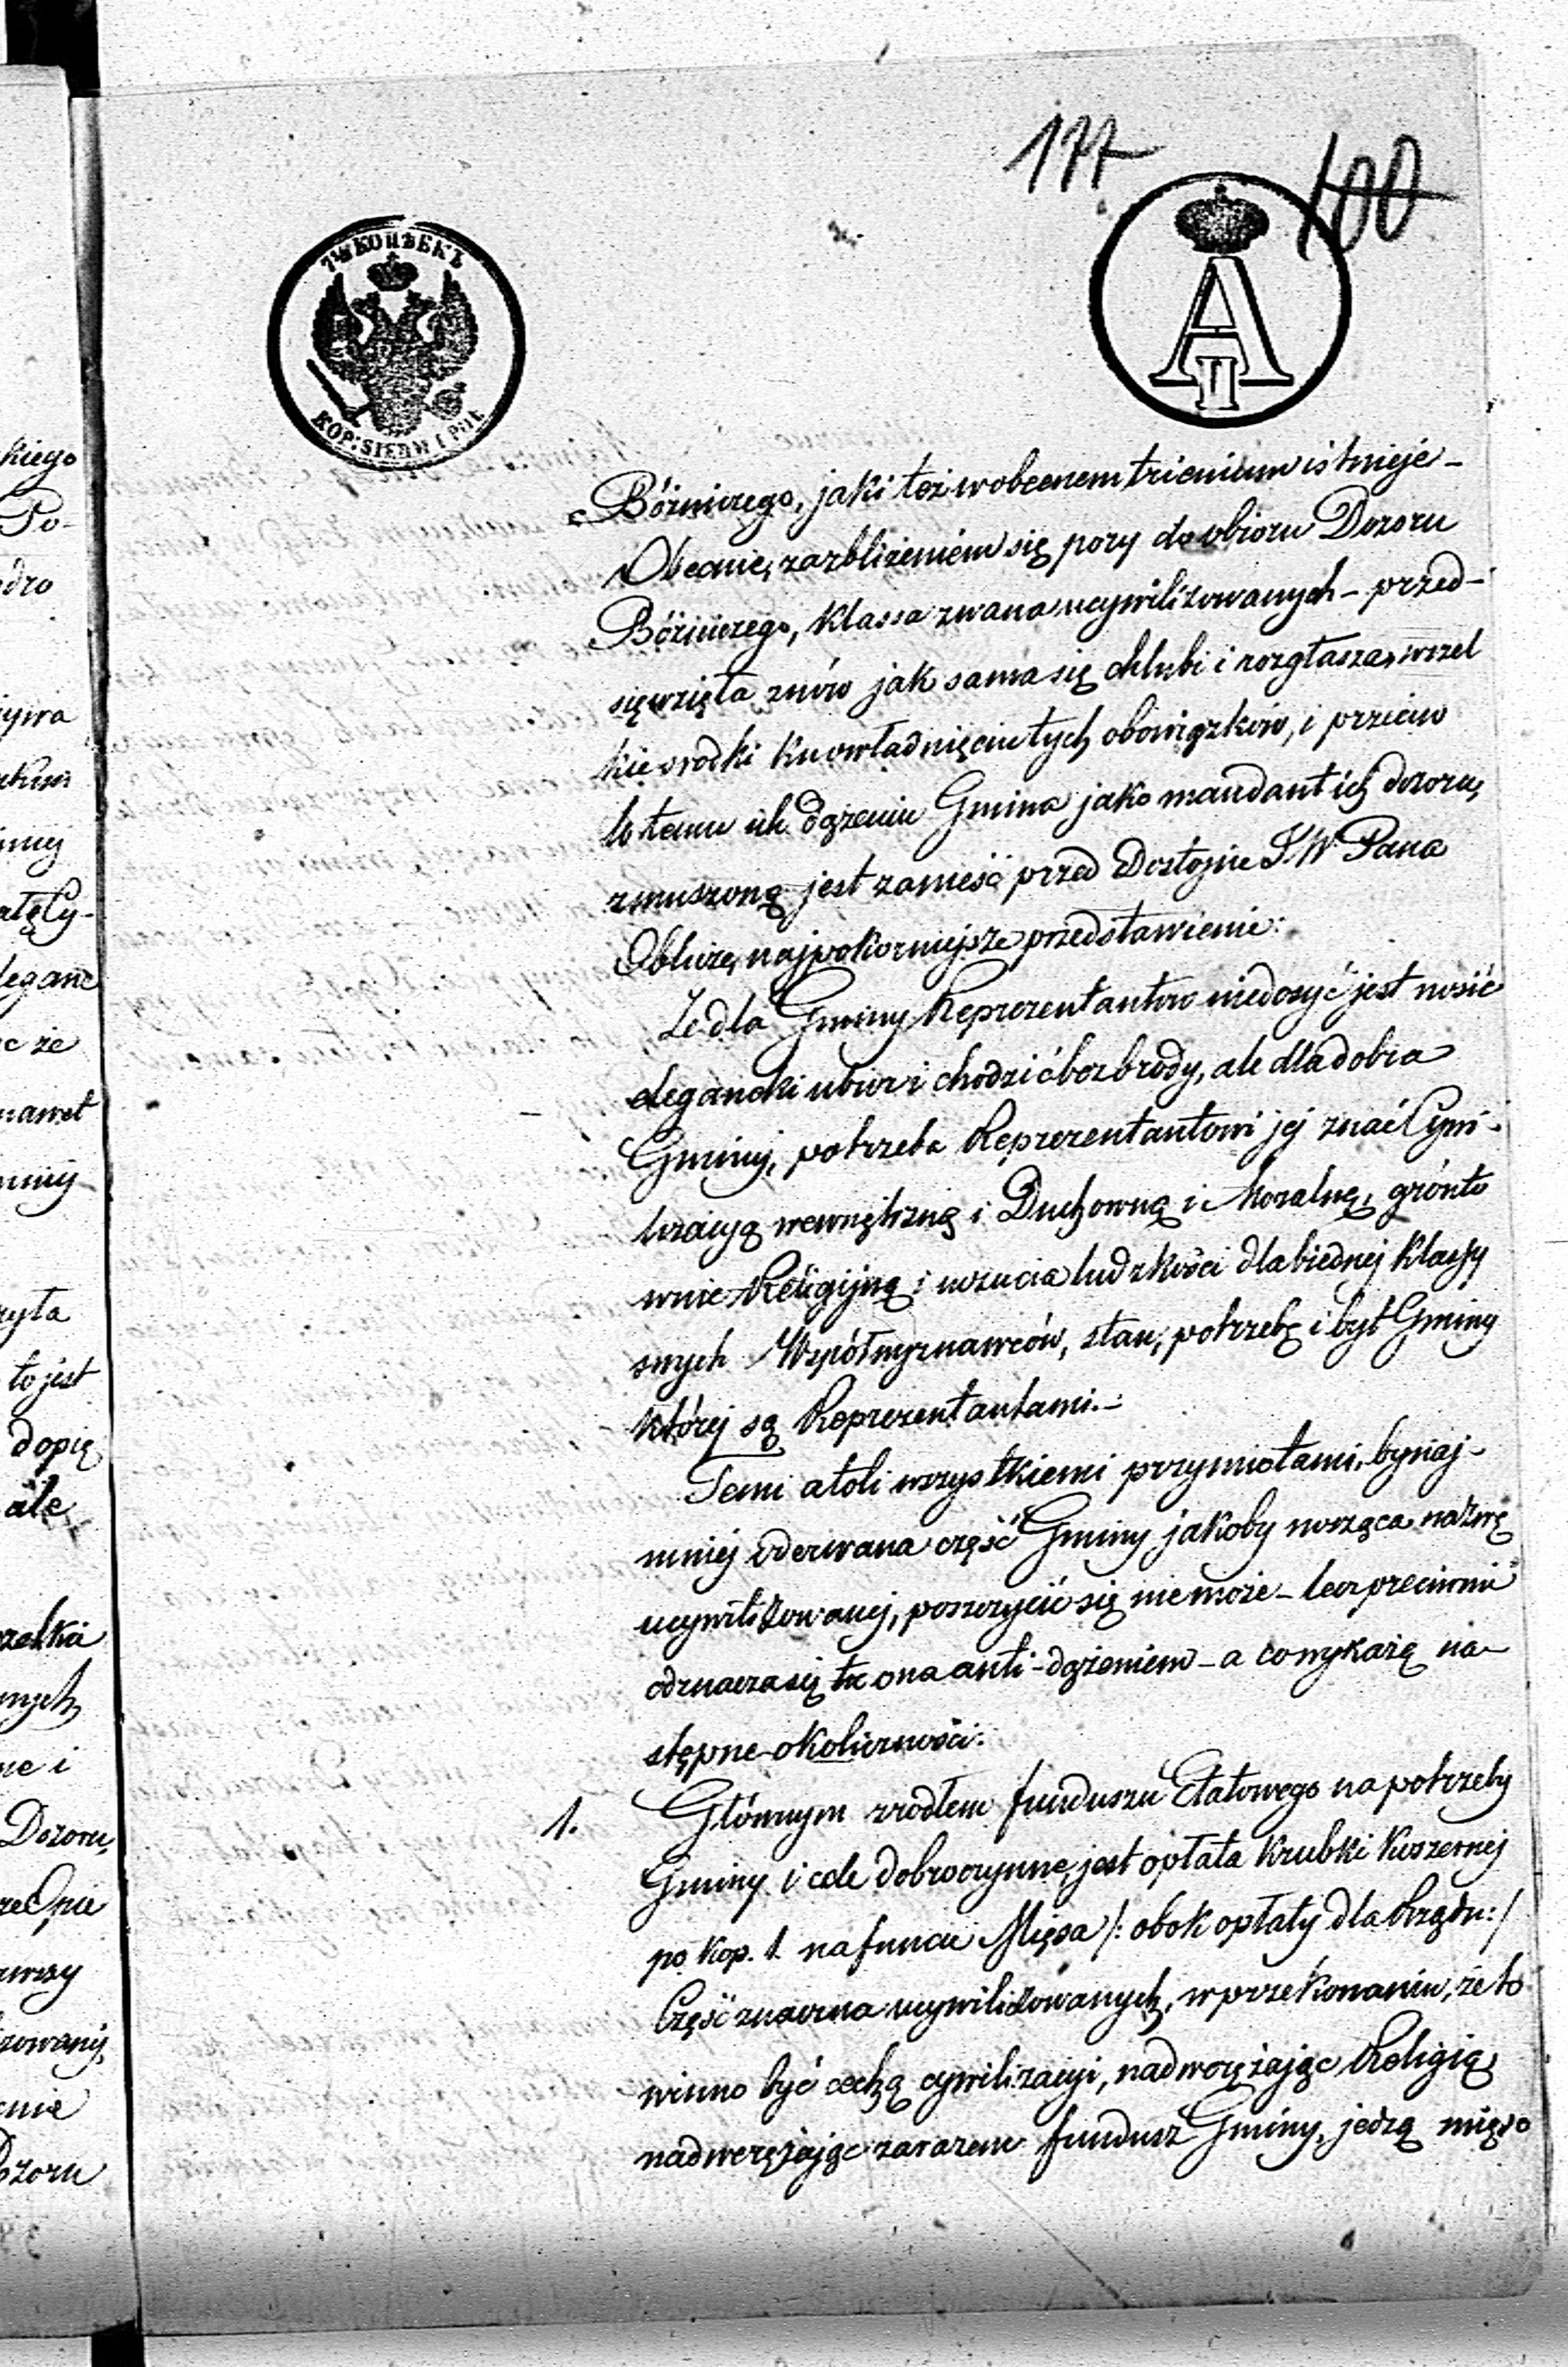 177
100
7½ КОПѢЕКЪ
KOP: SIEDM I PÓŁ
A II
Bóżniczego, jaki też w obecnem trienium istnieje –
Obecnie, za zbliżeniem się pory do obioru Dozoru
Bóżniczego, klassa zwana ucywilizowanych – przed-
sięwzięła znów jak sama się chlubi i rozgłasza, wszel
kie srodki ku owładnięciu tych obowiązków, i przeciw
ko temu ich dążeniu Gmina jako mandant ich dozoru,
zmuszoną jest zanieść przed Dostojne J.W. Pana
Oblicze, najpokorniejsze przedstawienie:
Że dla Gminy Reprezentantów niedosyć jest nosić
elegancki ubior i chodzić bez brody, ale dla dobra
Gminy, potrzeba Reprezentantowi jej znać Cywi-
lizacyą wewnętrzną i Duchowną i Moralną, grónto
wnie Religijną i uczucia ludzkości dla biednej klassy
swych Współwyznawców, stan, potrzebę i byt Gminy
której są Reprezentantami. –
Temi atoli wszystkiemi przymiotami, bynaj-
mniej oderwana część Gminy jakoby nosząca nazwę
ucywilizowanej, poszczycić się nie może – lecz przeciwnie
odznacza się ona anti-dążeniem – a co wykażą na-
stępne okoliczności:
1. Głównym zrodłem funduszu Etatowego na potrzeby
Gminy i cele dobroczynne, jest opłata krubki koszernej
po kop. 1. na funcie Mięsa /: obok opłaty dla Rządu :/
Część znaczna ucywilizowanych, w przekonaniu, że to
winno być cechą cywilizacyi, nadwerężając Religią
nadwerężając zarazem fundusz Gminy, jedzą mięso
kiego
Po-
dro
nawet
to jest
dopię
ale
Dozoru,